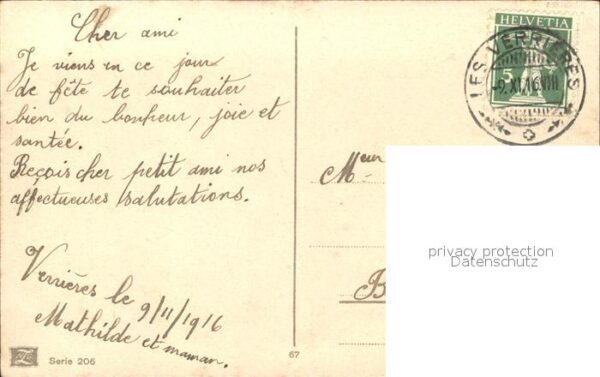 Cher ami
Je viens en ce jour
de fête te souhaiter
bien du bonheur, joie et
santée.
Reçois cher petit ami nos
affectueuses salutations.
Verrières le
9/11/1916
Mathilde et maman.
Serie 206
67
HELVETIA
5
LES VERRIÈRES
-9.XI.16.VIII
Meur
B
privacy protection
Datenschutz